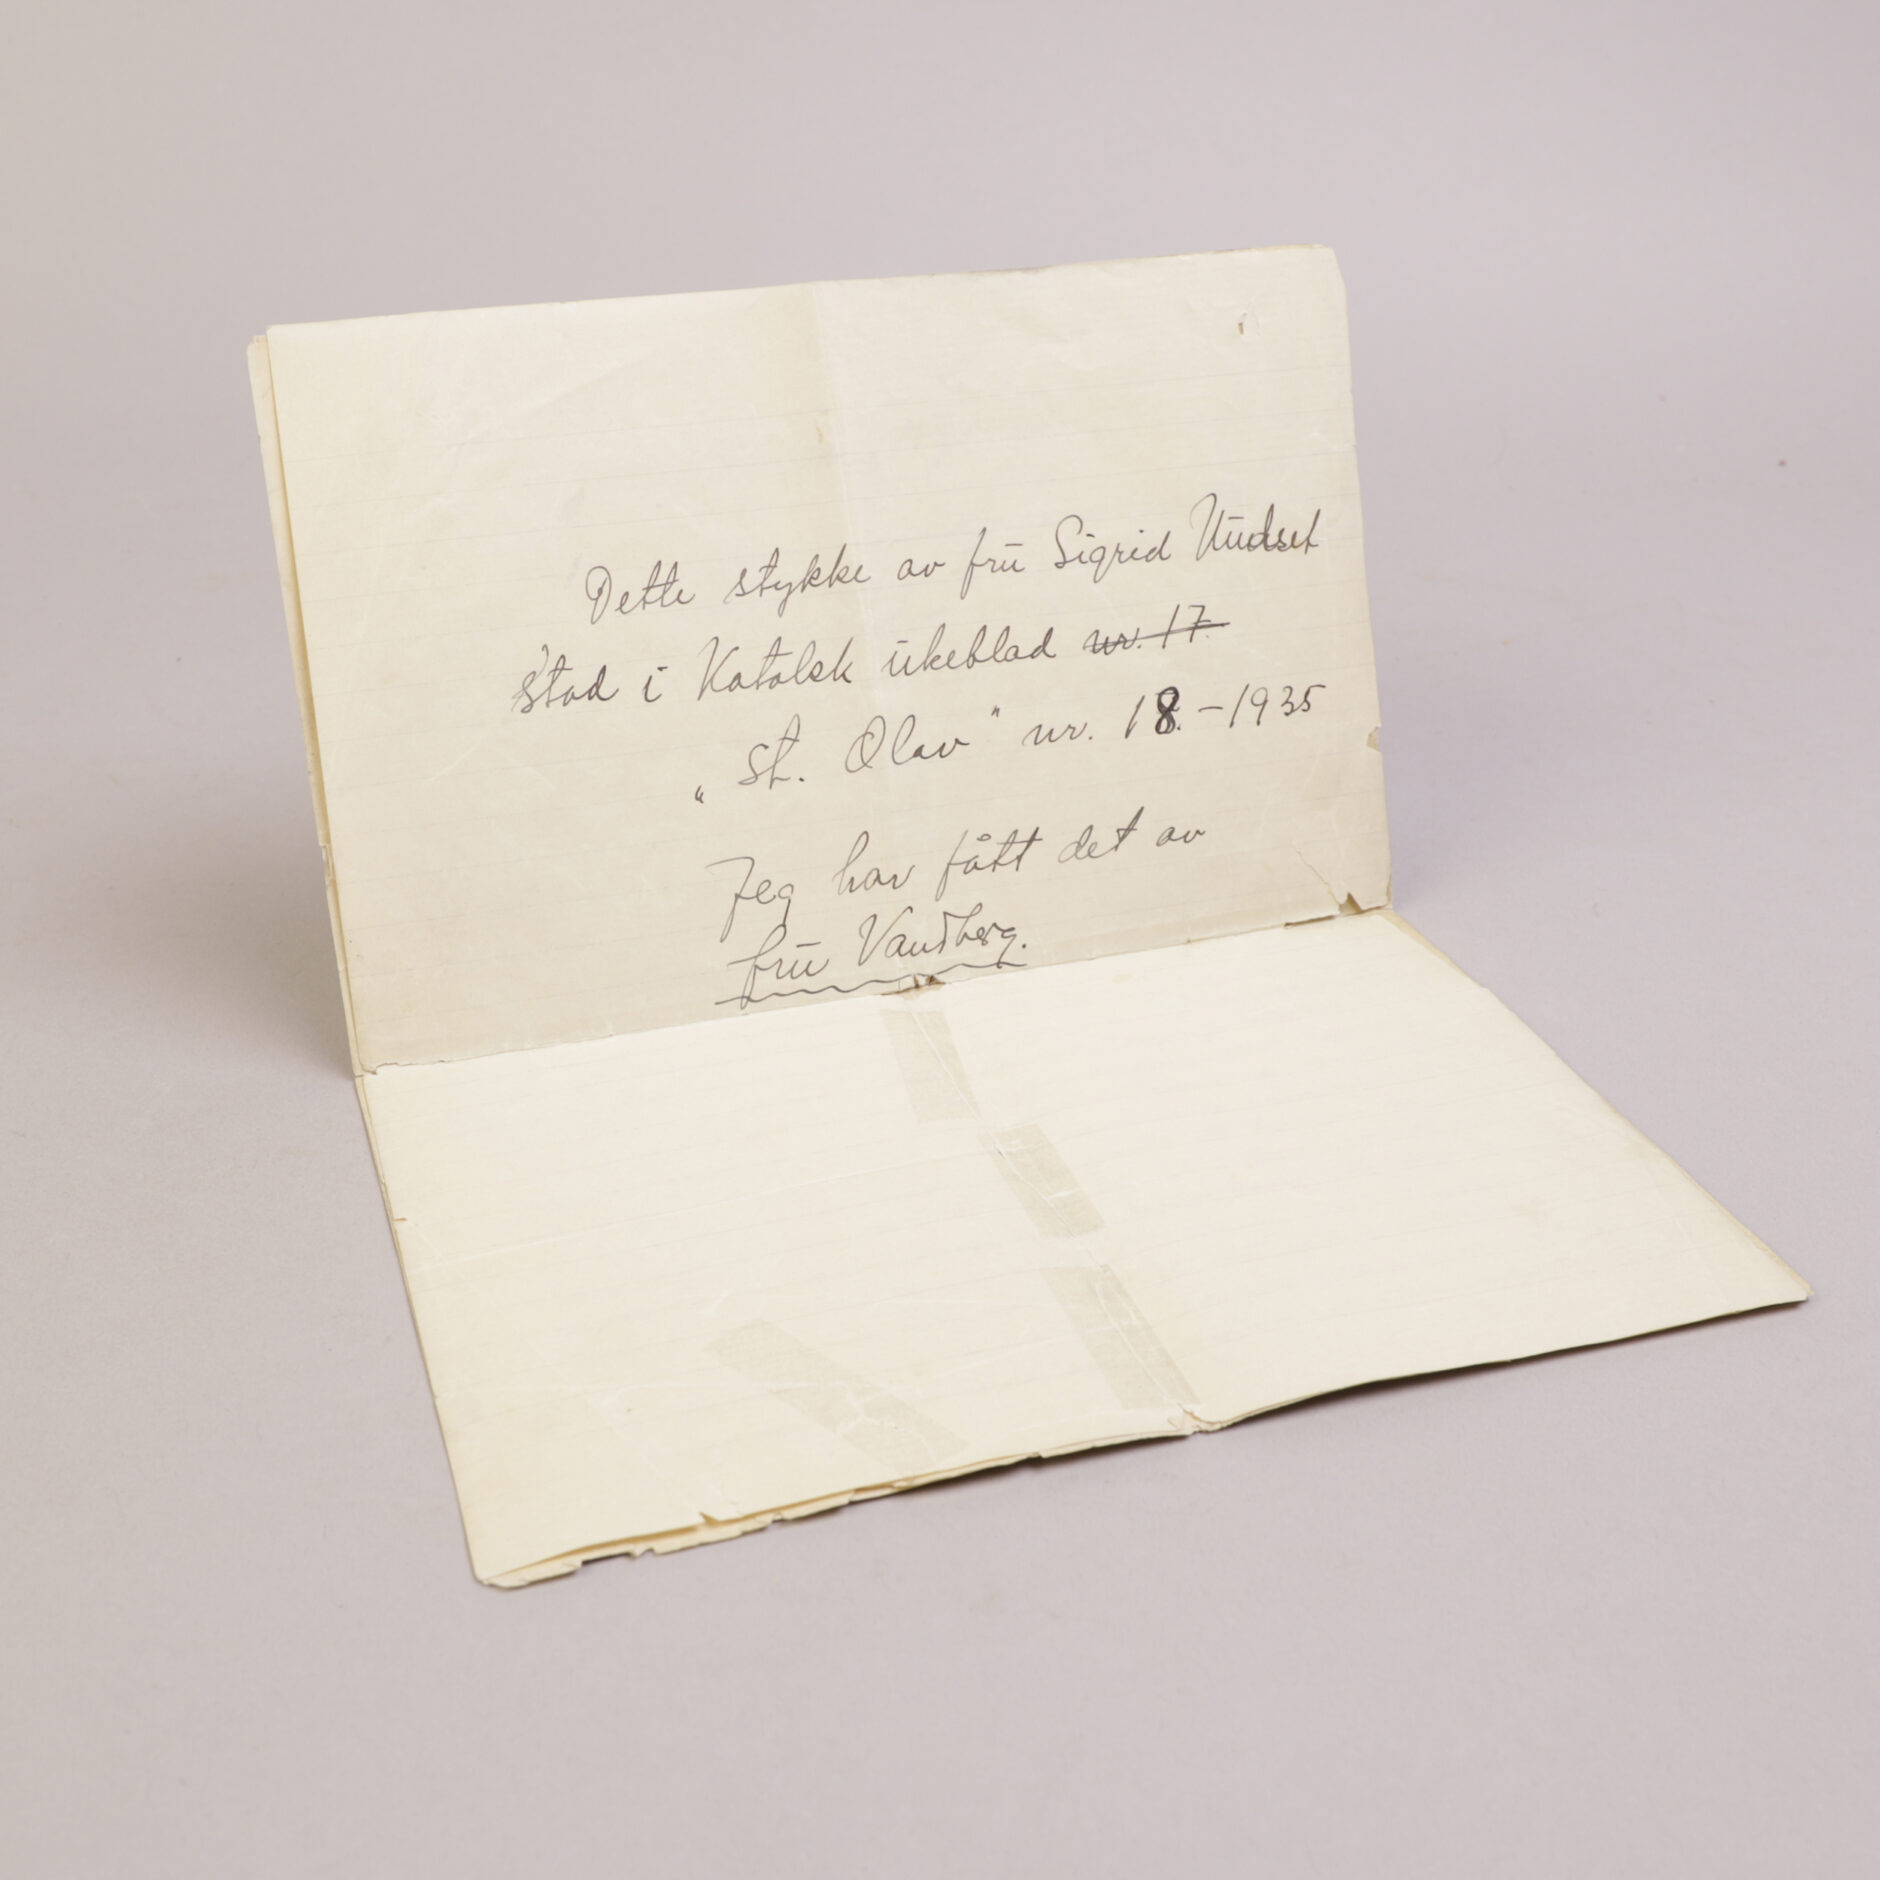 Dette stykke av frū Sigrid Undset
stod i Katolsk ūkeblad nr. 17.
„St. Olav" nr. 18. – 1935
Jeg har fått det av
frū Vandberg.